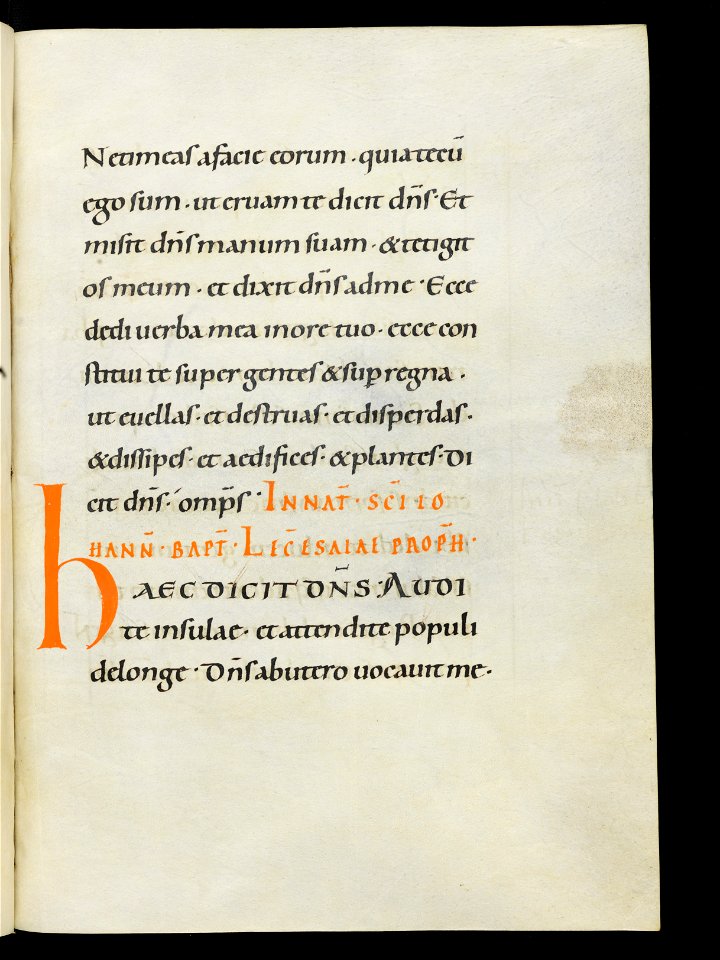 Netimeas afacie eorum · quia tecū
ego sum · ut eruam te dicit dn̄s · Et
misit dn̄s manum suam · & tetigit
os meum · et dixit dn̄s adme · Ecce
dedi uerba mea inore tuo · ecce con
stitui te super gentes & suꝑ regna ·
ut euellas · et destruas · et disperdas ·
& dissipes · et aedifices · & plantes · Di
cit dn̄s · omp̄s · IN NAT̄ · SC̄I IO
HANN̄ · BAPT̄ · LEC̄ ESAIAE PROPH̄ ·
hAEC DICIT DN̄S · AUDI
te insulae · et attendite populi
delonge · Dn̄s abutero uocauit me ·